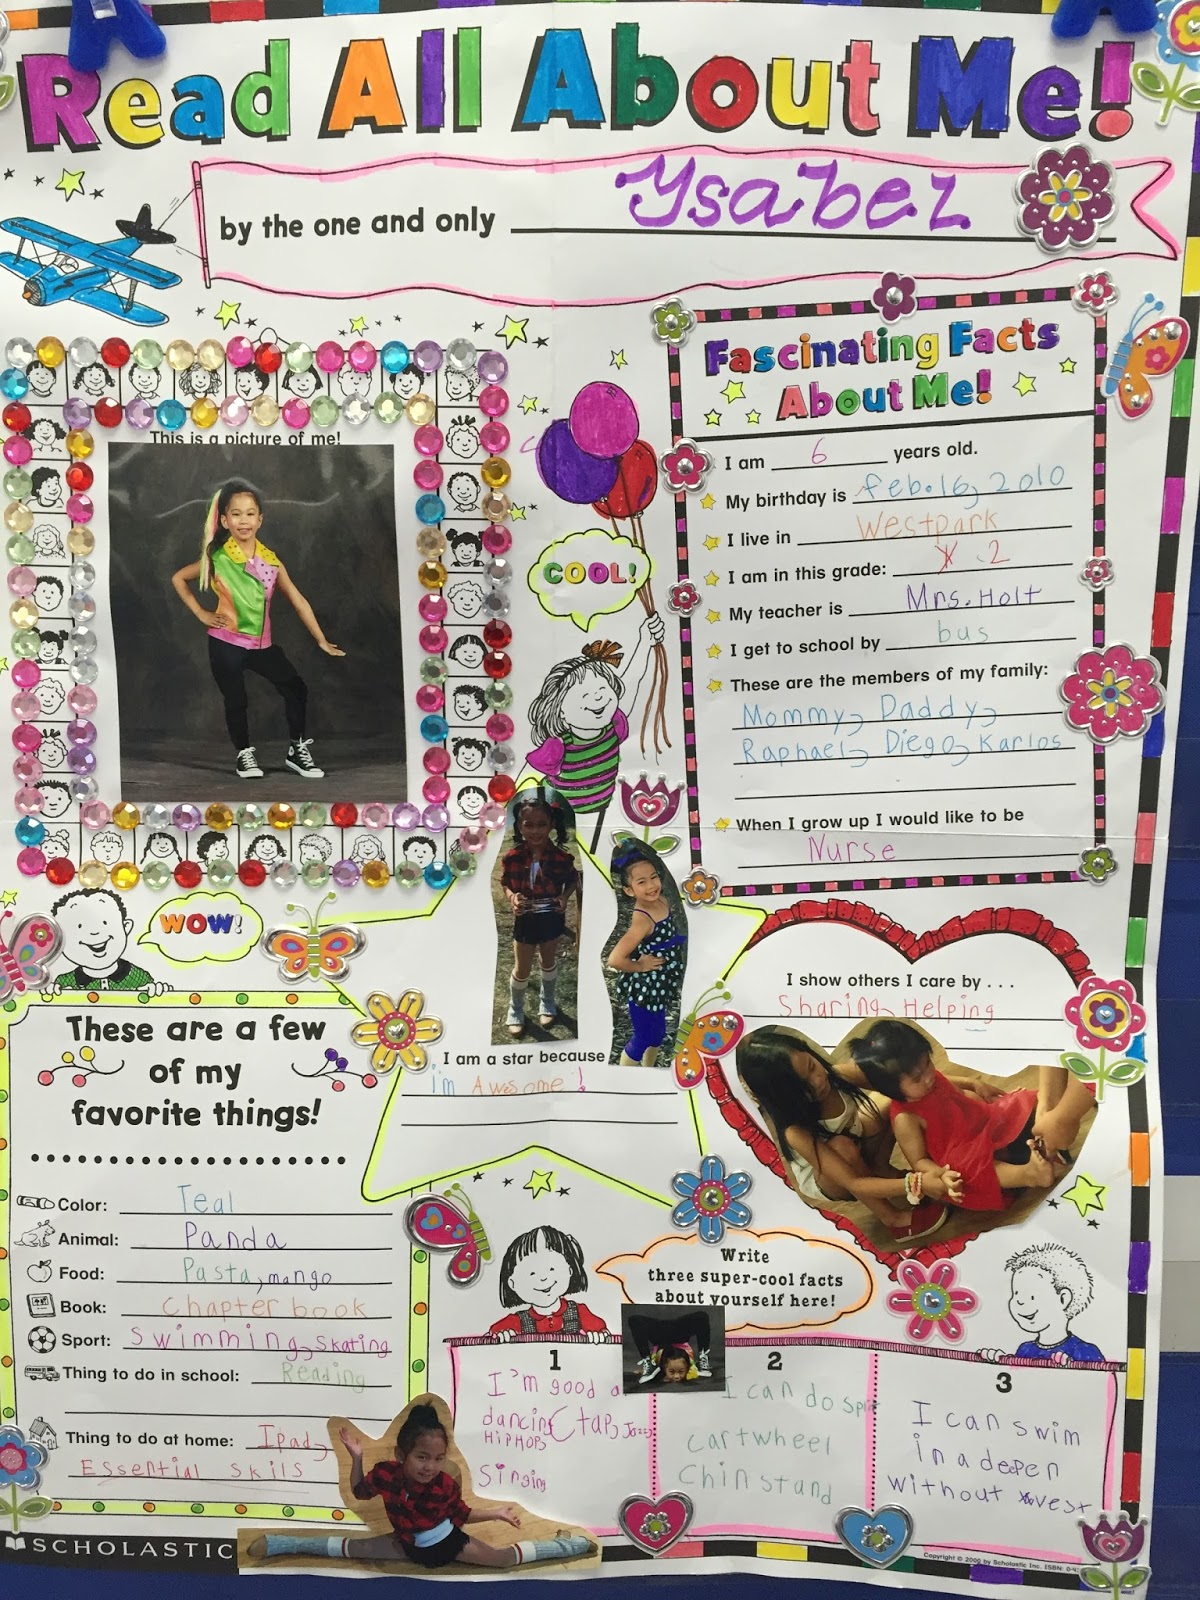 Read All About Me!
by the one and only Ysabel
This is a picture of me!
COOL!
Fascinating Facts
About Me!
I am 6 years old.
My birthday is feb.16, 2010
I live in Westpark
I am in this grade: 2
My teacher is Mrs. Holt
I get to school by bus
These are the members of my family:
Mommy, Daddy,
Raphael, Diego, Karlos
When I grow up I would like to be
Nurse
WOW!
These are a few
of my
favorite things!
Color: Teal
Animal: Panda
Food: Pasta, mango
Book: chapter book
Sport: Swimming, skating
Thing to do in school: Reading
Thing to do at home: Ipad,
Essential skils
I am a star because
im Awesome!
I show others I care by . . .
Sharing, Helping
Write
three super-cool facts
about yourself here!
1
I'm good a
dancing (tap, Jazz,
HIPHOP,
Singing
2
I can do
cartwheel
chinstand
3
I can swim
in a deepen
without vest
SCHOLASTIC
Copyright © 2000 by Scholastic Inc. ISBN: